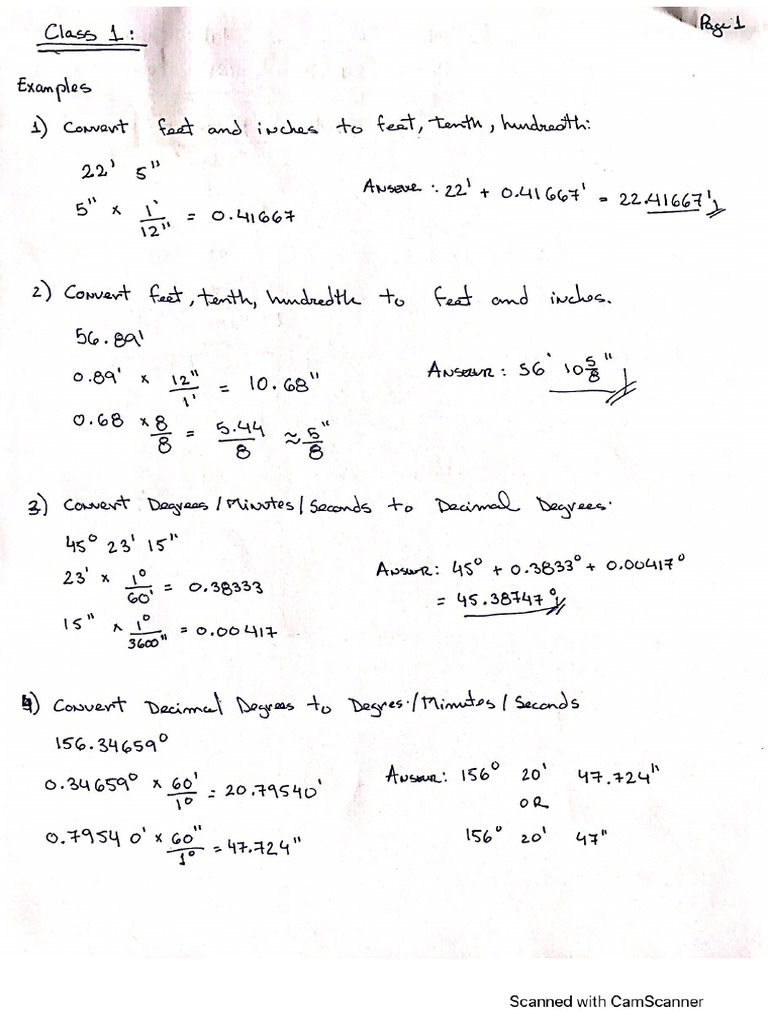 Class 1:
Page 1
Examples
1) Convert feet and inches to feet, tenth, hundreoth:
22' 5"
5" x 1'/12" = 0.41667
Answer : 22' + 0.41667' = 22.41667'
2) Convert feet, tenth, hundredth to feet and inches.
56.89'
0.89' x 12"/1' = 10.68"
0.68 x 8/8 = 5.44/8 ≈ 5"/8
Answer : 56' 10 5/8"
3) Convert Degrees/Minutes/Seconds to Decimal Degrees.
45° 23' 15"
23' x 1°/60' = 0.38333
15" x 1°/3600" = 0.00417
Answer: 45° + 0.3833° + 0.00417°
= 45.38747°
4) Convert Decimal Degrees to Degres/Minutes/Seconds
156.34659°
0.34659° x 60'/1° = 20.79540'
0.7954 0' x 60"/1° = 47.724"
Answer: 156° 20' 47.724"
OR
156° 20' 47"
Scanned with CamScanner